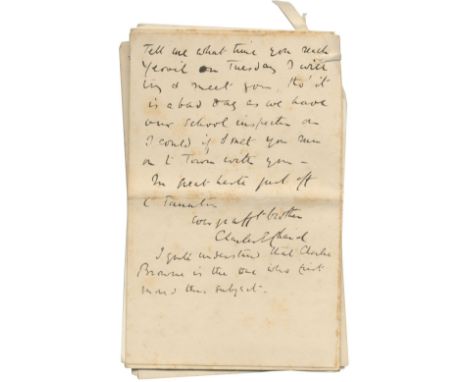 Tell me what time you reach
Yeovil on Tuesday I will
try & meet you, tho' it
is a bad day as we have
our school inspector on
I could if I met you run
on t Town with you -
In great haste just off
t Taunton
your afft brother
Charles
I quite understand that Charles
Browne is the one who first
moved this subject.